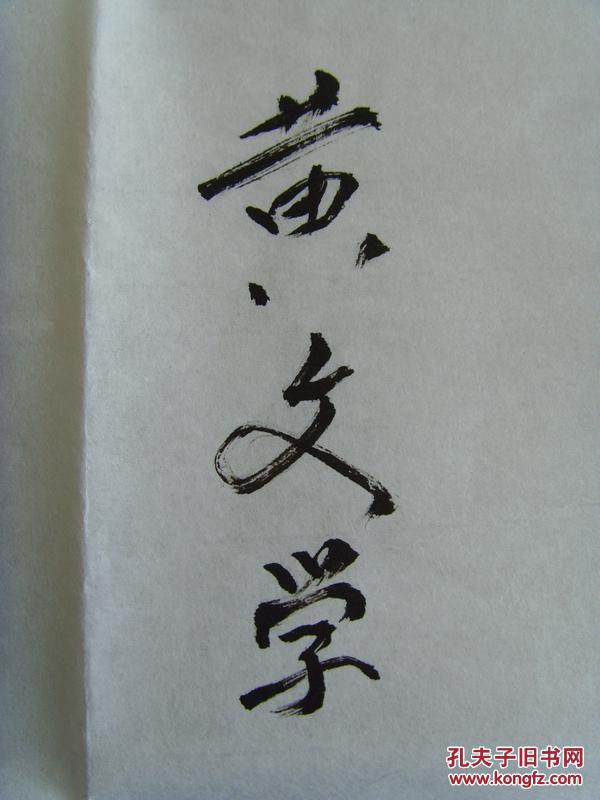 黄文学
孔夫子旧书网
www.kongfz.com